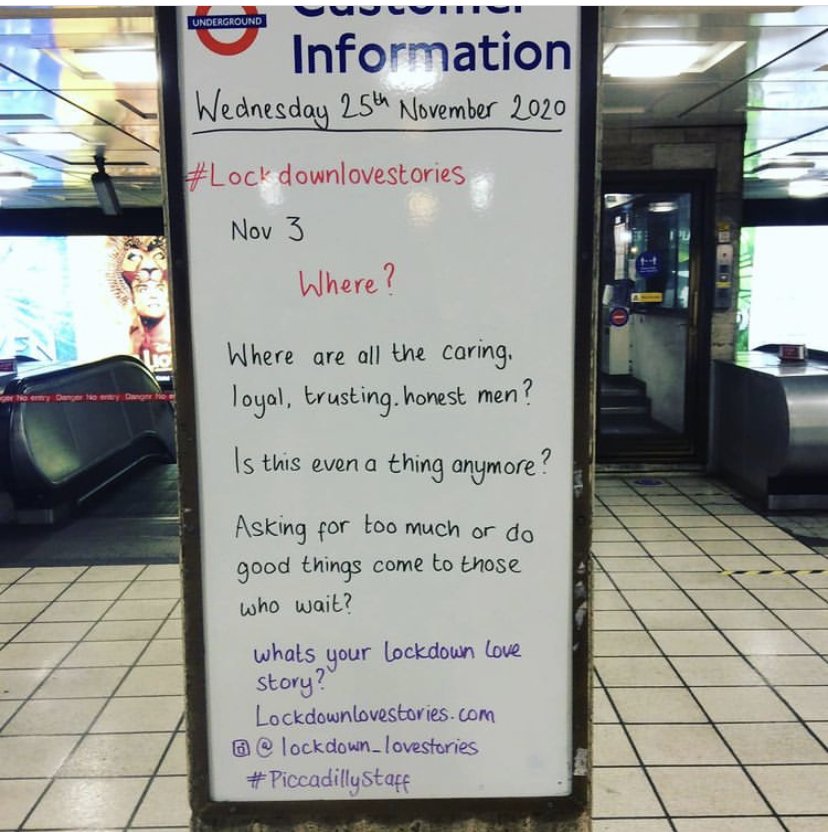 UNDERGROUND
Customer
Information
Wednesday 25th November 2020
#Lockdownlovestories
Nov 3
Where?
Where are all the caring.
loyal, trusting.honest men?
Is this even a thing anymore?
Asking for too much or do
good things come to those
who wait?
whats your lockdown love
story?
Lockdownlovestories.com
@ lockdown_lovestories
#PiccadillyStaff
Danger No entry Danger No entry Danger No e